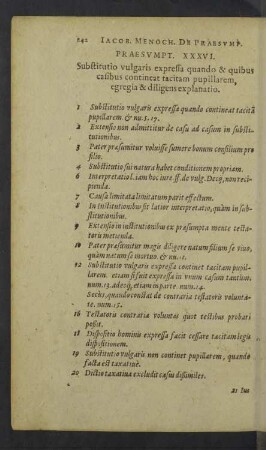 242 IACOB. MENOCH. DE PRAESVMP.
PRAESVMPT. XXXVI.
Substitutio vulgaris expressa quando & quibus
casibus contineat tacitam pupillarem,
egregia & diligens explanatio.
1 Substitutio vulgaris expressa quando contineat tacitã
pupillarem & nu.5.17.
2 Extensio non admittitur de casu ad casum in substi-
tutionibus.
3 Pater praesumitur voluisse sumere bonum consilium pro
filio.
4 Substitutio sui natura habet conditionem propriam.
6 Interpretatio l.iam hoc iure ff. de vulg. Decq, non reci-
pienda.
7 Causa limitata limitatum parit effectum.
8 In institutionibus fit latior interpretatio, quàm in sub-
stitutionibus.
9 Extensio in institutionibus ex praesumpta mente testa-
toris metienda.
10 Pater praesumitur magis diligere natum filium se viuo,
quàm natum se mortuo & nu.11.
12 Substitutio vulgaris expressa continet tacitam pupil-
larem etiam si sit expressa in vnum casum tantùm,
num.13. adeoq, etiam ex parte. num.14.
Secus, quando constat de contraria testatoris volunta-
te. num.15.
16 Testatoris contraria voluntas quòt testibus probari
possit.
18 Dispositio hominis expressa facit cessare tacitam legis
dispositionem.
19 Substitutio vulgaris non continet pupillarem, quando
facta est taxatiuè.
20 Dictio taxatiua excludit casus dissimiles.
21 Sub